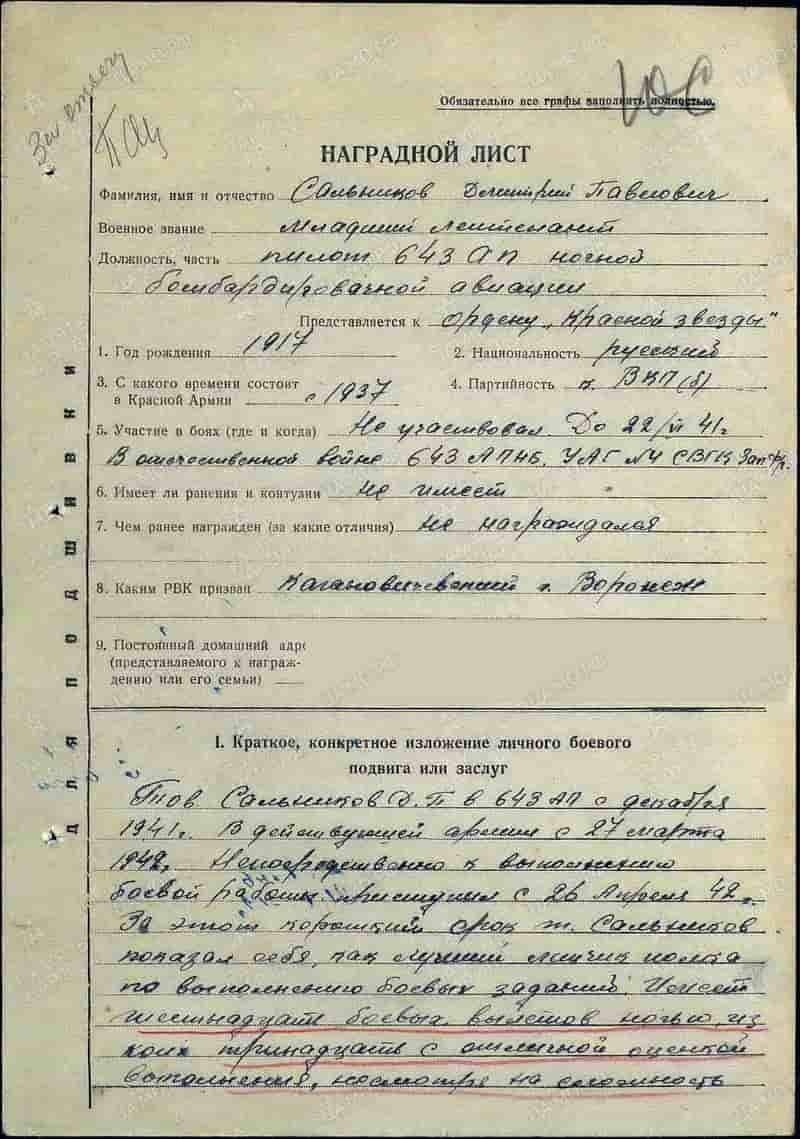 За отвагу
Обязательно все графы заполнять полностью.
НАГРАДНОЙ ЛИСТ
Фамилия, имя и отчество Сальников Дмитрий Павлович
Военное звание младший лейтенант
Должность, часть пилот 643 АП ночной
бомбардировачной авиации
Представляется к ордену „Красной звезды"
1. Год рождения 1917 2. Национальность русский
3. С какого времени состоит
в Красной Армии с 1937 4. Партийность к. ВКП(б)
5. Участие в боях (где и когда) Не участвовал. До 22/VI 41г
В отечественной войне 643 АПНБ, УАГ №4 СВГК Зап.
6. Имеет ли ранения и контузии не имеет
7. Чем ранее награжден (за какие отличия) не награждался
8. Каким РВК призван Кагановичевский г. Воронеж
9. Постоянный домашний адр
(представляемого к награж-
дению или его семьи)
Для подшивки
I. Краткое, конкретное изложение личного боевого
подвига или заслуг
Тов. Сальников Д.П в 643 АП с декабря
1941г. В действующей армии с 27 марта
1942г. Непосредственно к выполнению
боевой работы приступил с 26 Апреля 42г.
За этот короткий срок т. Сальников
показал себя, как лучший летчик полка
по выполнению боевых заданий. Имеет
шестнадцать боевых вылетов ночью, из
коих тринадцать с отличной оценкой
выполнения, несмотря на сложность